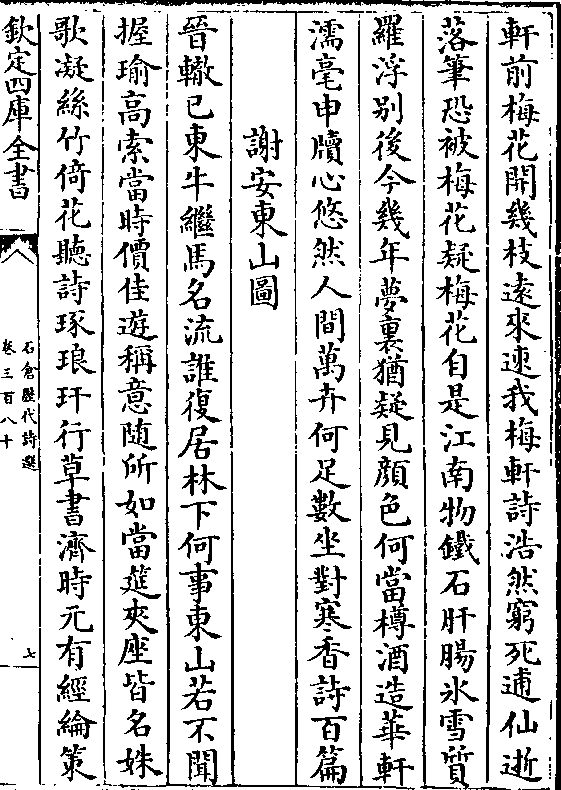 軒前梅花開幾枝遠來速我梅軒詩浩然窮死逋仙逝
落筆恐被梅花疑梅花自是江南物鐵石肝腸氷雪質
羅浮别後今幾年夢裏猶疑見顔色何當樽酒造華軒
濡毫申牘心悠然人間萬卉何足數坐對寒香詩百篇
謝安東山圖
晉轍已東牛繼馬名流誰復居林下何事東山若不聞
握瑜高索當時價佳遊稱意随所如當筵夾座皆名姝
歌凝絲竹倚花聽詩琢琅玕行草書濟時元有經綸策
欽定四庫全書
石倉歷代詩選
卷三百八十
七